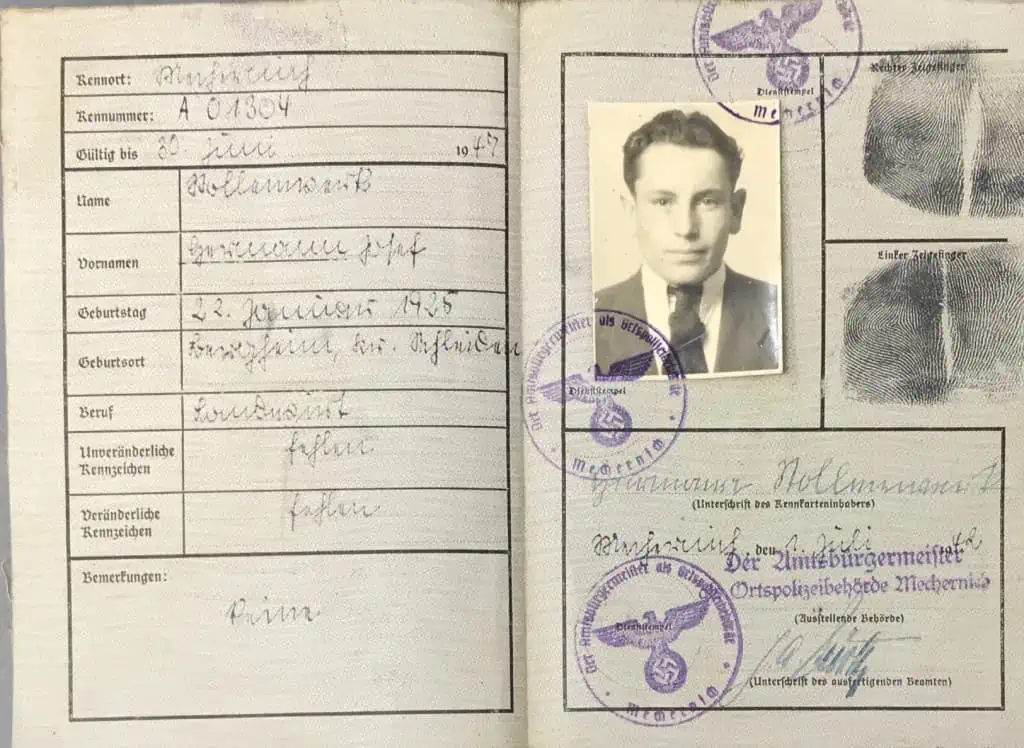 Kennort: Mechernich
Kennummer: A 01304
Gültig bis 30. Juni 1947
Name
Vornamen Hermann Josef
Geburtstag 22. Januar 1925
Geburtsort Bergheim, Kr. Schleiden
Beruf Landwirt
Unveränderliche
Kennzeichen fehlen
Veränderliche
Kennzeichen fehlen
Bemerkungen:
Keine
Der Amtsbürgermeister als Ortspolizeibehörde
Dienststempel
Mechernich
Rechter Zeigefinger
Linker Zeigefinger
Der Amtsbürgermeister als Ortspolizeibehörde
Dienststempel
Mechernich
Hermann
(Unterschrift des Kennkarteninhabers)
Mechernich, den 1. Juli 1942
Der Amtsbürgermeister
Ortspolizeibehörde Mechernich
(Ausstellende Behörde)
Der Amtsbürgermeister als Ortspolizeibehörde
Dienststempel
Mechernich
(Unterschrift des ausfertigenden Beamten)